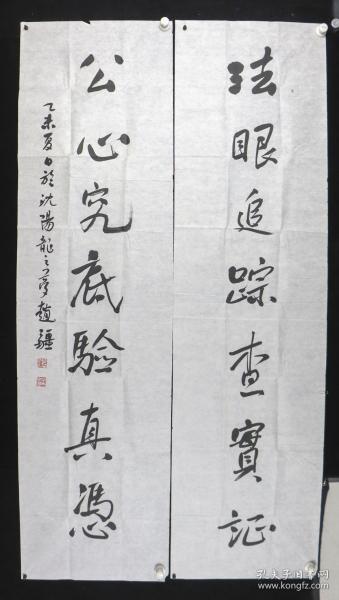 法眼追踪查實证
公心究底驗真憑
乙未夏日於沈陽龍之夢趙疆
孔夫子旧书网
www.kongfz.com